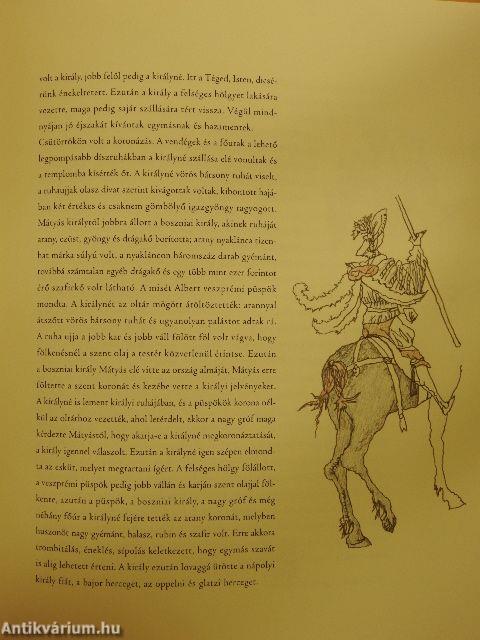 volt a király, jobb felől pedig a királyné. Itt a Téged, Isten, dicsé-
rünk énekeltetett. Ezután a király a felséges hölgyet lakására
vezette, maga pedig saját szállására tért vissza. Végül mind-
nyájan jó éjszakát kívántak egymásnak és hazamentek.
Csütörtökön volt a koronázás. A vendégek és a főurak a lehető
legpompásabb díszruhákban a királyné szállása elé vonultak és
a templomba kísérték őt. A királyné vörös bársony ruhát viselt,
a ruhaujjak olasz divat szerint kivágottak voltak, kibontott hajá-
ban két értékes és csaknem gömbölyű igazgyöngy ragyogott.
Mátyás királytól jobbra állott a boszniai király, akinek ruháját
arany, ezüst, gyöngy és drágakő borította; arany nyaklánca tizen-
hat márka súlyú volt, a nyakláncon háromszáz darab gyémánt,
továbbá számtalan egyéb drágakő és egy több mint ezer forintot
érő szafírkő volt látható. A misét Albert veszprémi püspök
mondta. A királynét az oltár mögött átöltöztették: arannyal
átszőtt vörös bársony ruhát és ugyanolyan palástot adtak rá.
A ruha ujja a jobb kar és jobb váll fölött föl volt vágva, hogy
fölkenésnél a szent olaj a testét közvetlenül érintse. Ezután
a boszniai király Mátyás elé vitte az ország almáját. Mátyás erre
föltette a szent koronát és kezébe vette a királyi jelvényeket.
A királyné is lement királyi ruhájában, és a püspökök korona nél-
kül az oltárhoz vezették, ahol letérdelt, akkor a nagy gróf maga
kérdezte Mátyástól, hogy akarja-e a királyné megkoronáztatását,
a király igennel válaszolt. Ezután a királyné igen szépen elmond-
ta az esküt, melyet megtartani ígért. A felséges hölgy fölállott,
a veszprémi püspök pedig jobb vállán és karján szent olajjal föl-
kente, azután a püspök, a boszniai király, a nagy gróf és még
néhány főúr a királyné fejére tették az arany koronát, melyben
huszonöt nagy gyémánt, balasz, rubin és szafír volt. Erre akkora
trombitálás, éneklés, sípolás keletkezett, hogy egymás szavát
is alig lehetett érteni. A király ezután lovaggá ütötte a nápolyi
király fiát, a bajor herceget, az oppelni és glatzi herceget.
Antikvárium.hu